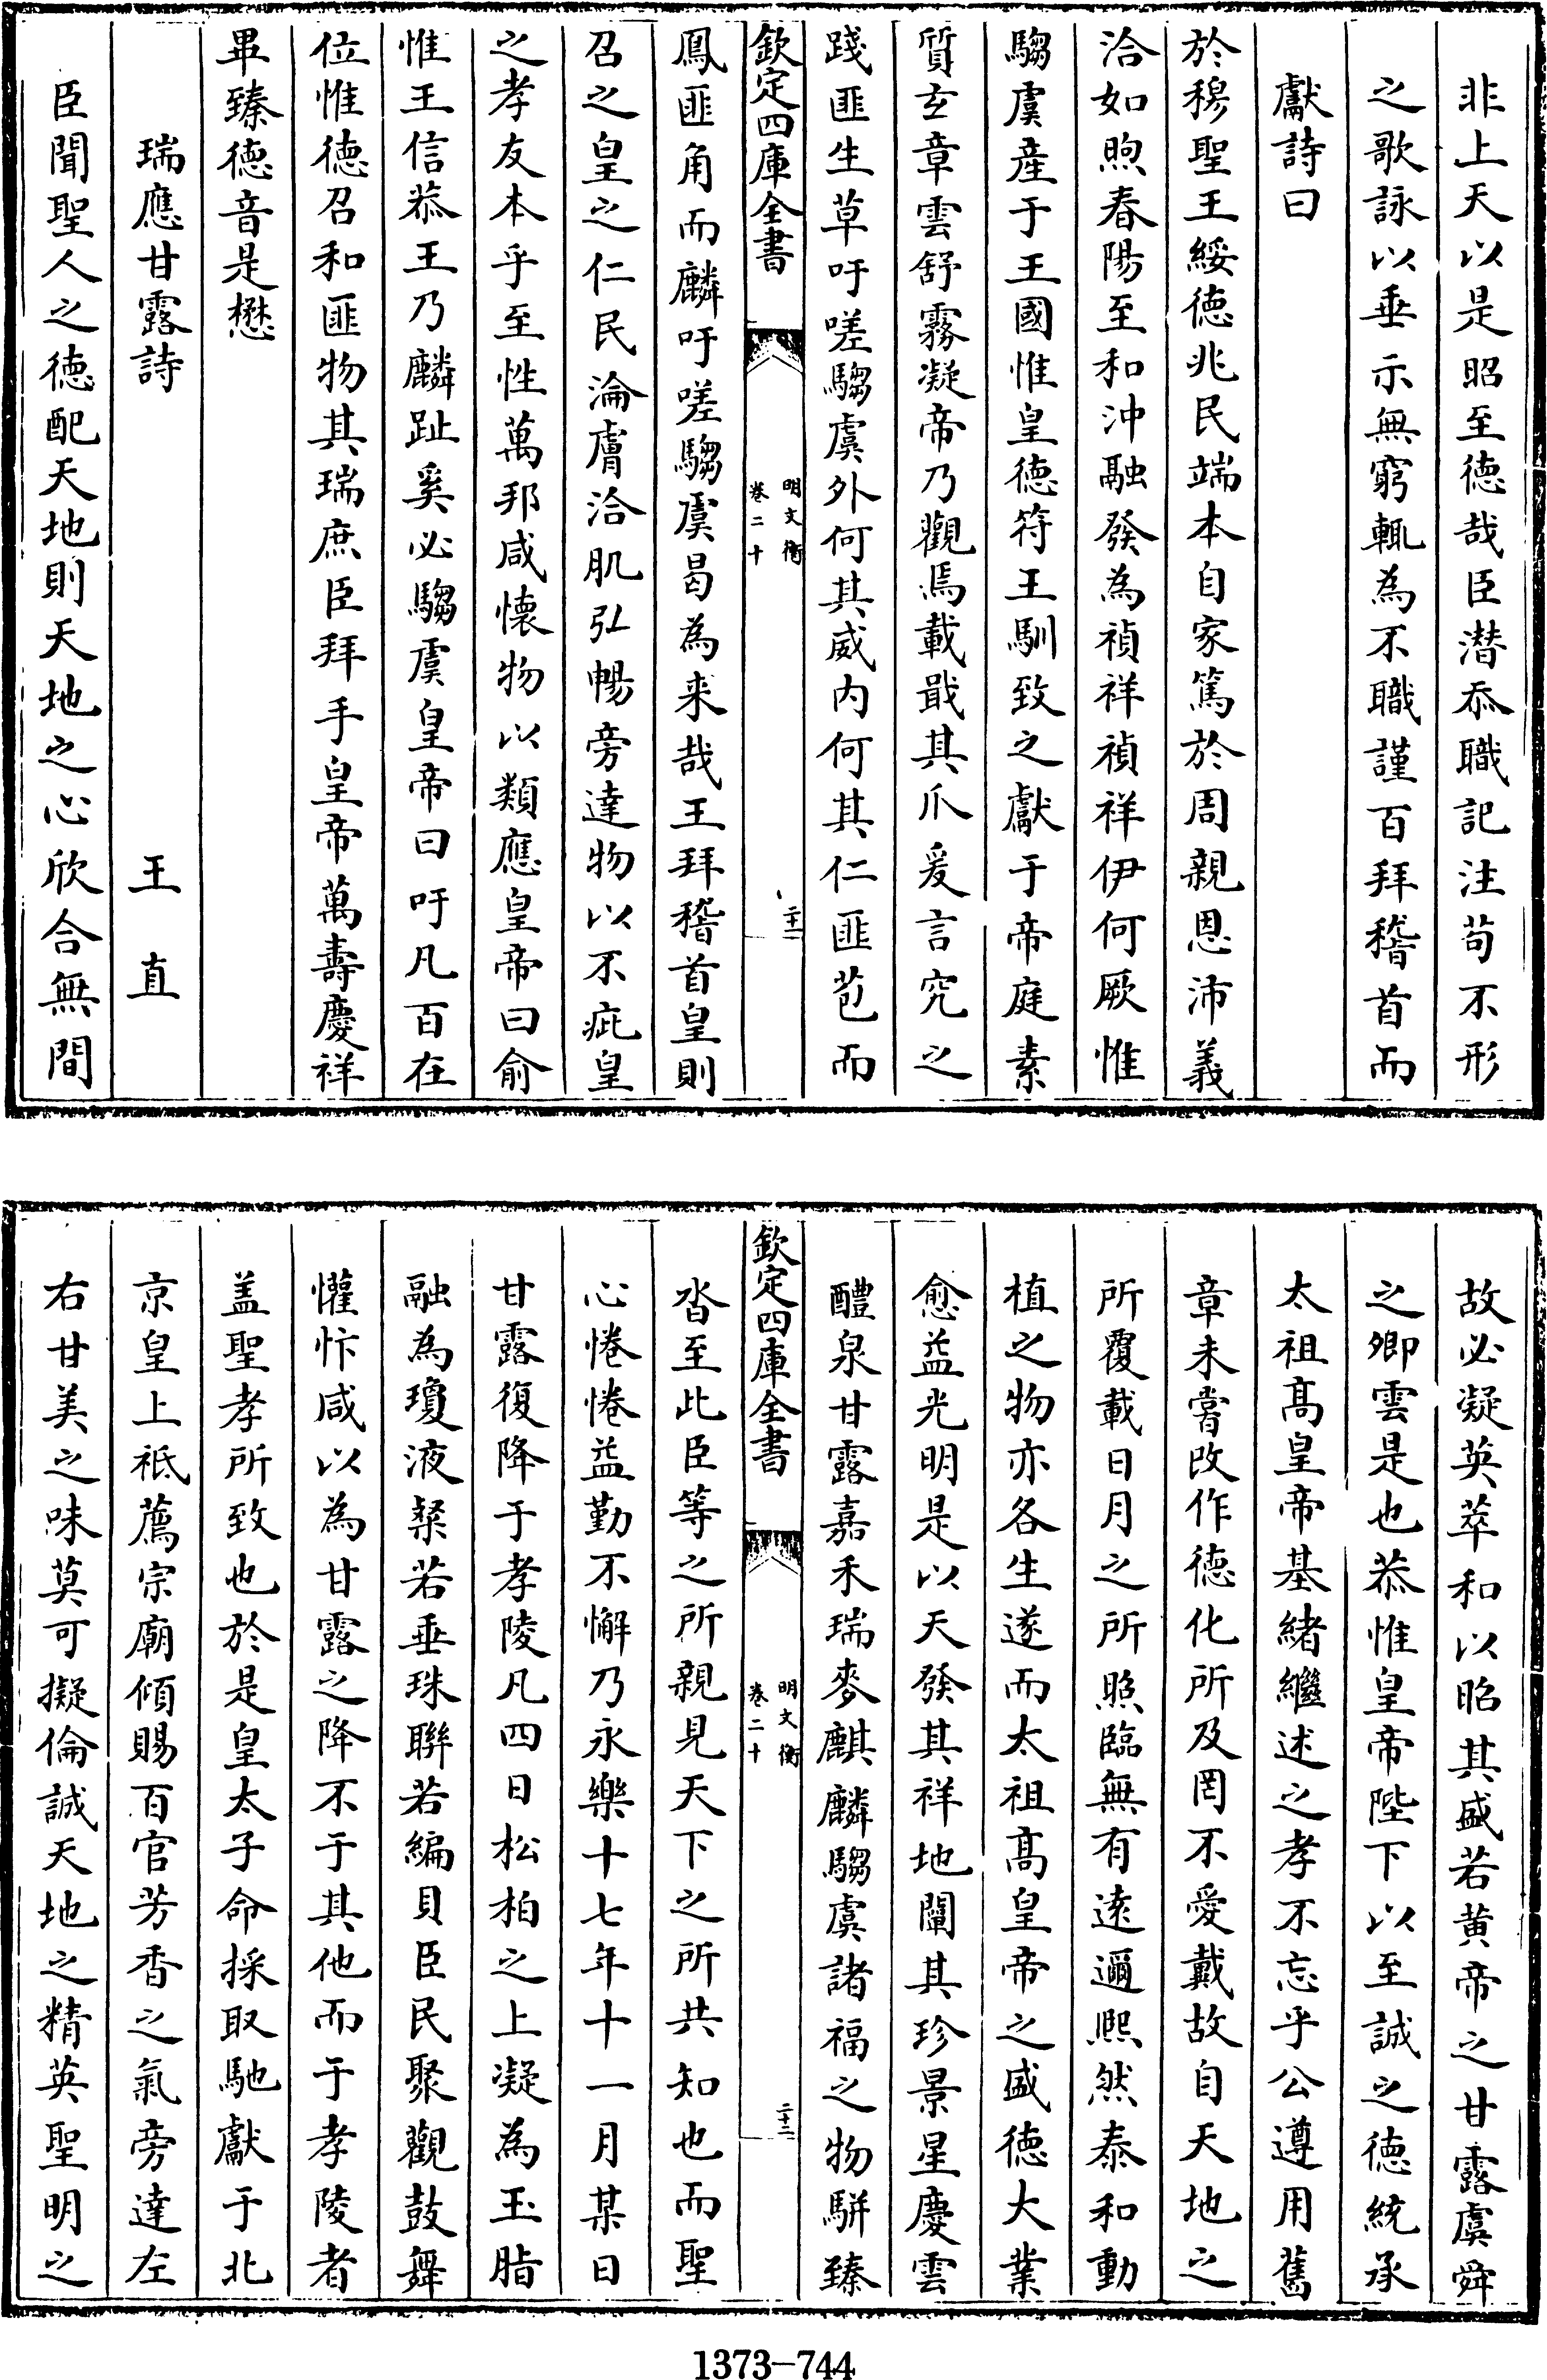 非上天以是昭至德哉臣潛忝職記注苟不形
之歌詠以垂示無窮輒為不職謹百拜稽首而
獻詩曰
於穆聖王綏德兆民端本自家篤於周親恩沛義
洽如煦春陽至和沖融發為禎祥禎祥伊何厥惟
騶虞產于王國惟皇德符王馴致之獻于帝庭素
質玄章雲舒霧凝帝乃觀焉載戢其爪爰言究之
踐匪生草吁嗟騶虞外何其威內何其仁匪苞而
欽定四庫全書
明文衡
卷二十
二十一
鳳匪角而麟吁嗟騶虞曷為来哉王拜稽首皇則
召之皇之仁民淪膚洽肌弘暢旁達物以不疵皇
之孝友本乎至性萬邦咸懷物以類應皇帝曰俞
惟王信恭王乃麟趾奚必騶虞皇帝曰吁凡百在
位惟德召和匪物其瑞庶臣拜手皇帝萬壽慶祥
畢臻德音是懋
瑞應甘露詩
王直
臣聞聖人之德配天地則天地之心欣合無間
故必凝英萃和以昭其盛若黃帝之甘露虞舜
之卿雲是也恭惟皇帝陛下以至誠之德統承
太祖髙皇帝基緒繼述之孝不忘乎公遵用舊
章未嘗改作德化所及罔不愛戴故自天地之
所覆載日月之所照臨無有遠邇熙然泰和動
植之物亦各生遂而太祖髙皇帝之盛德大業
愈益光明是以天發其祥地闡其珍景星慶雲
醴泉甘露嘉禾瑞麥麒麟騶虞諸福之物駢臻
欽定四庫全書
明文衡
卷二十
二十二
沓至此臣等之所親見天下之所共知也而聖
心惓惓益勤不懈乃永樂十七年十一月某日
甘露復降于孝陵凡四日松柏之上凝為玉脂
融為瓊液粲若垂珠聯若編貝臣民聚觀鼓舞
懽忭咸以為甘露之降不于其他而于孝陵者
盖聖孝所致也於是皇太子命採取馳獻于北
京皇上祗薦宗廟傾賜百官芳香之氣旁達左
右甘美之味莫可擬倫誠天地之精英聖明之
1373-744